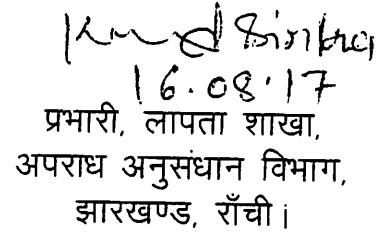 16.08.17
प्रभारी, लापता शाखा,
अपराध अनुसंधान विभाग,
झारखण्ड, राँची।